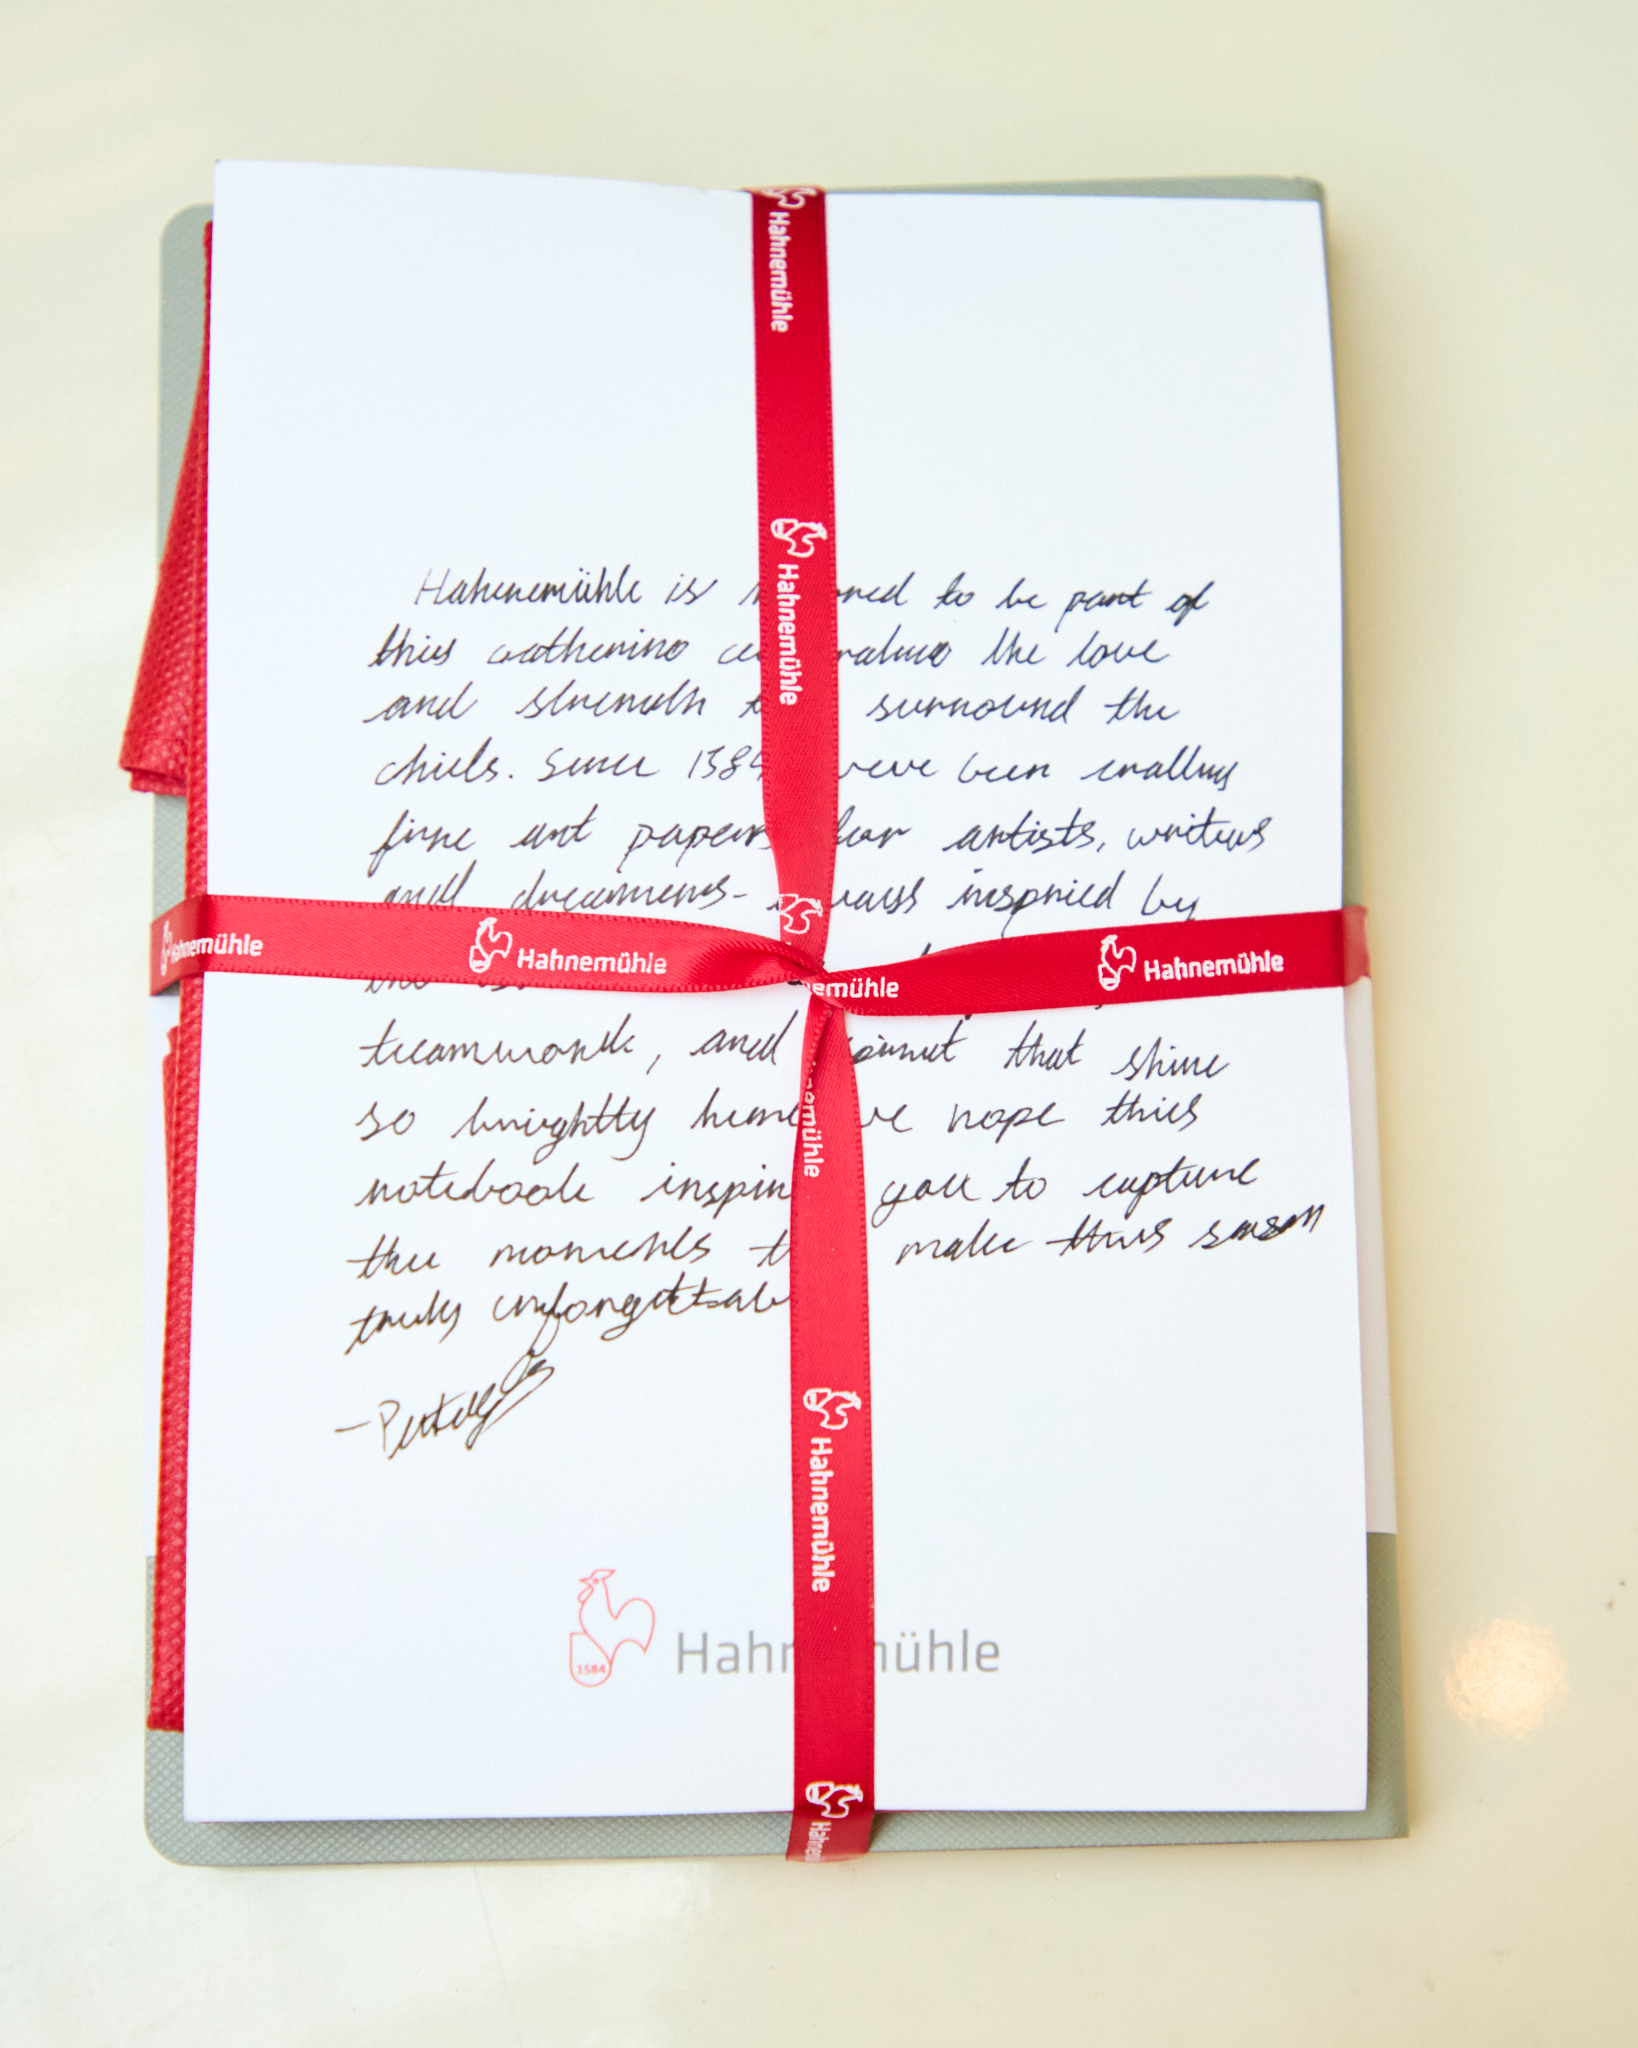 Hahnemühle
Hahnemühle
Hahnemühle is ned to be part of
this gathering the love
and strength surround the
chiefs. Since 158 we've been crafting
fine art papers for artists, writers
and dreamers- inspired by
Hahnemühle
Hahnemühle
emühle
Hahnemühle
the
teamwork, and that shine
so brightly here we hope this
notebook inspir you to capture
the moments make this season
truly unforgettab
emühle
Hahnemühle
1584
Hahn mühle
Hahnem